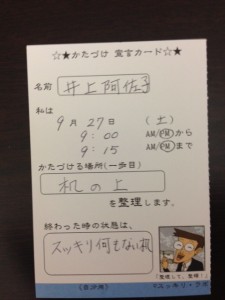 ☆★かたづけ 宣言カード☆★
名前 井上阿佐子
私は
9月27日 (土)
9:00 AM/PMから
9:15 AM/PMまで
かたづける場所(一歩目)
机の上
を整理します。
終わった時の状態は、
スッキリ何もない机